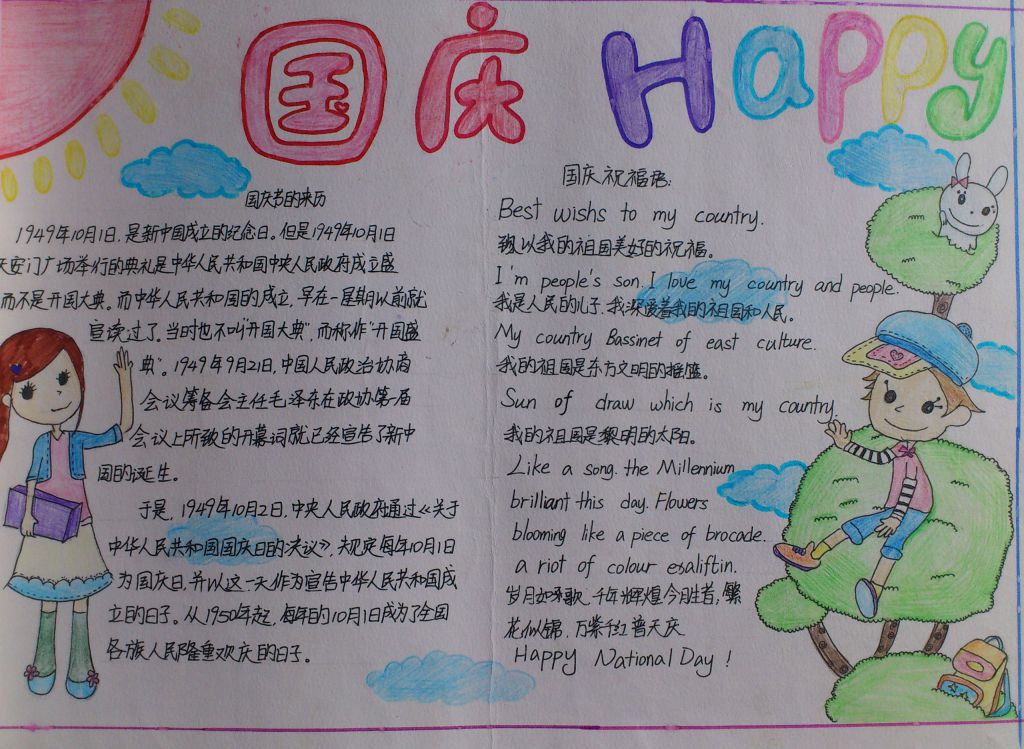 国庆 Happy
国庆节的来历
1949年10月1日,是新中国成立的纪念日。但是1949年10月1日
天安门广场举行的典礼是中华人民共和国中央人民政府成立盛
而不是开国大典。而中华人民共和国的成立,早在一星期以前就
宣读过了。当时也不叫"开国大典",而称作"开国盛
典"。1949年9月21日,中国人民政治协商
会议筹备会主任毛泽东在政协第一届
会议上所致的开幕词就已经宣告了新中
国的诞生。
于是,1949年10月2日,中央人民政府通过《关于
中华人民共和国国庆日的决议》,规定每年10月1日
为国庆日,并以这一天作为宣告中华人民共和国成
立的日子。从1950年起,每年的10月1日成为了全国
各族人民隆重欢庆的日子。
国庆祝福语:
Best wishs to my country.
以我的祖国美好的祝福。
I'm people's son. I love my country and people.
我是人民的儿子,我深爱着我的祖国和人民。
My country Bassinet of east culture.
我的祖国是东方文明的摇篮。
Sun of draw which is my country.
我的祖国是黎明的太阳。
Like a song. the Millennium
brilliant this day. Flowers
blooming like a piece of brocade.
a riot of colour esaliftin.
岁月如歌,千年辉煌今月,繁
花似锦,万紫千红普天庆
Happy National Day!